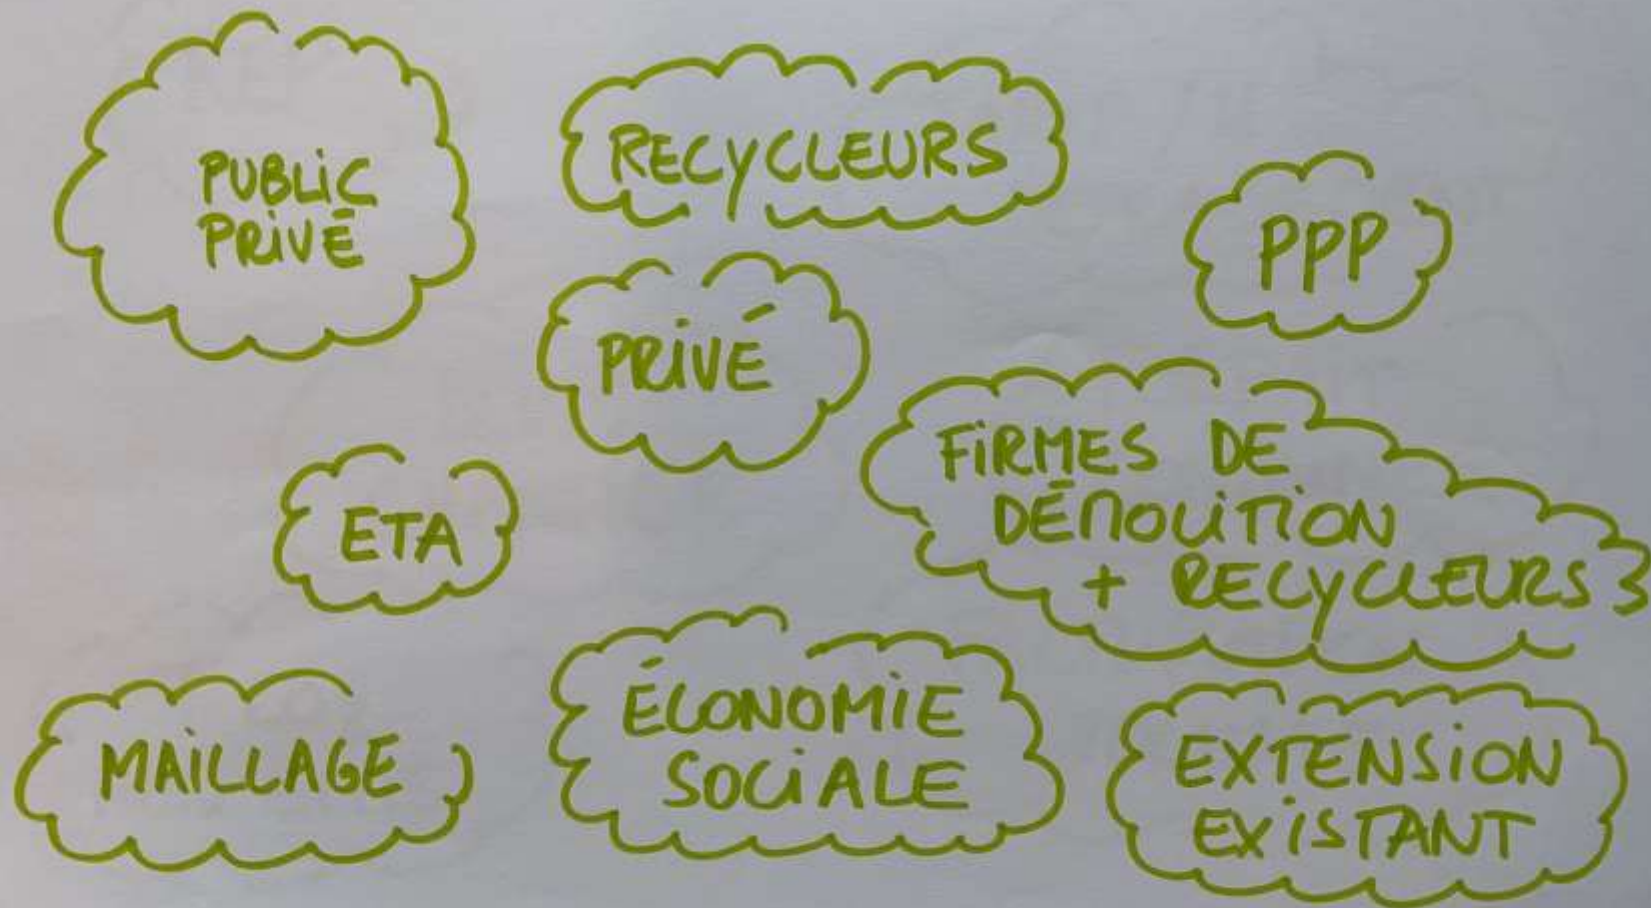 PUBLIC
PRIVÉ
RECYCLEURS
PPP
PRIVÉ
FIRMES DE
DÉMOLITION
+ RECYCLEURS
ETA
MAILLAGE
ÉCONOMIE
SOCIALE
EXTENSION
EXISTANT